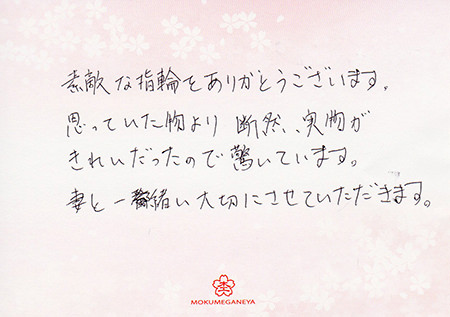 素敵な指輪をありがとうございます。
思っていた物より 断然、実物が
きれいだったので驚いています。
妻と一緒い大切にさせていただきます。
MOKUMEGANEYA